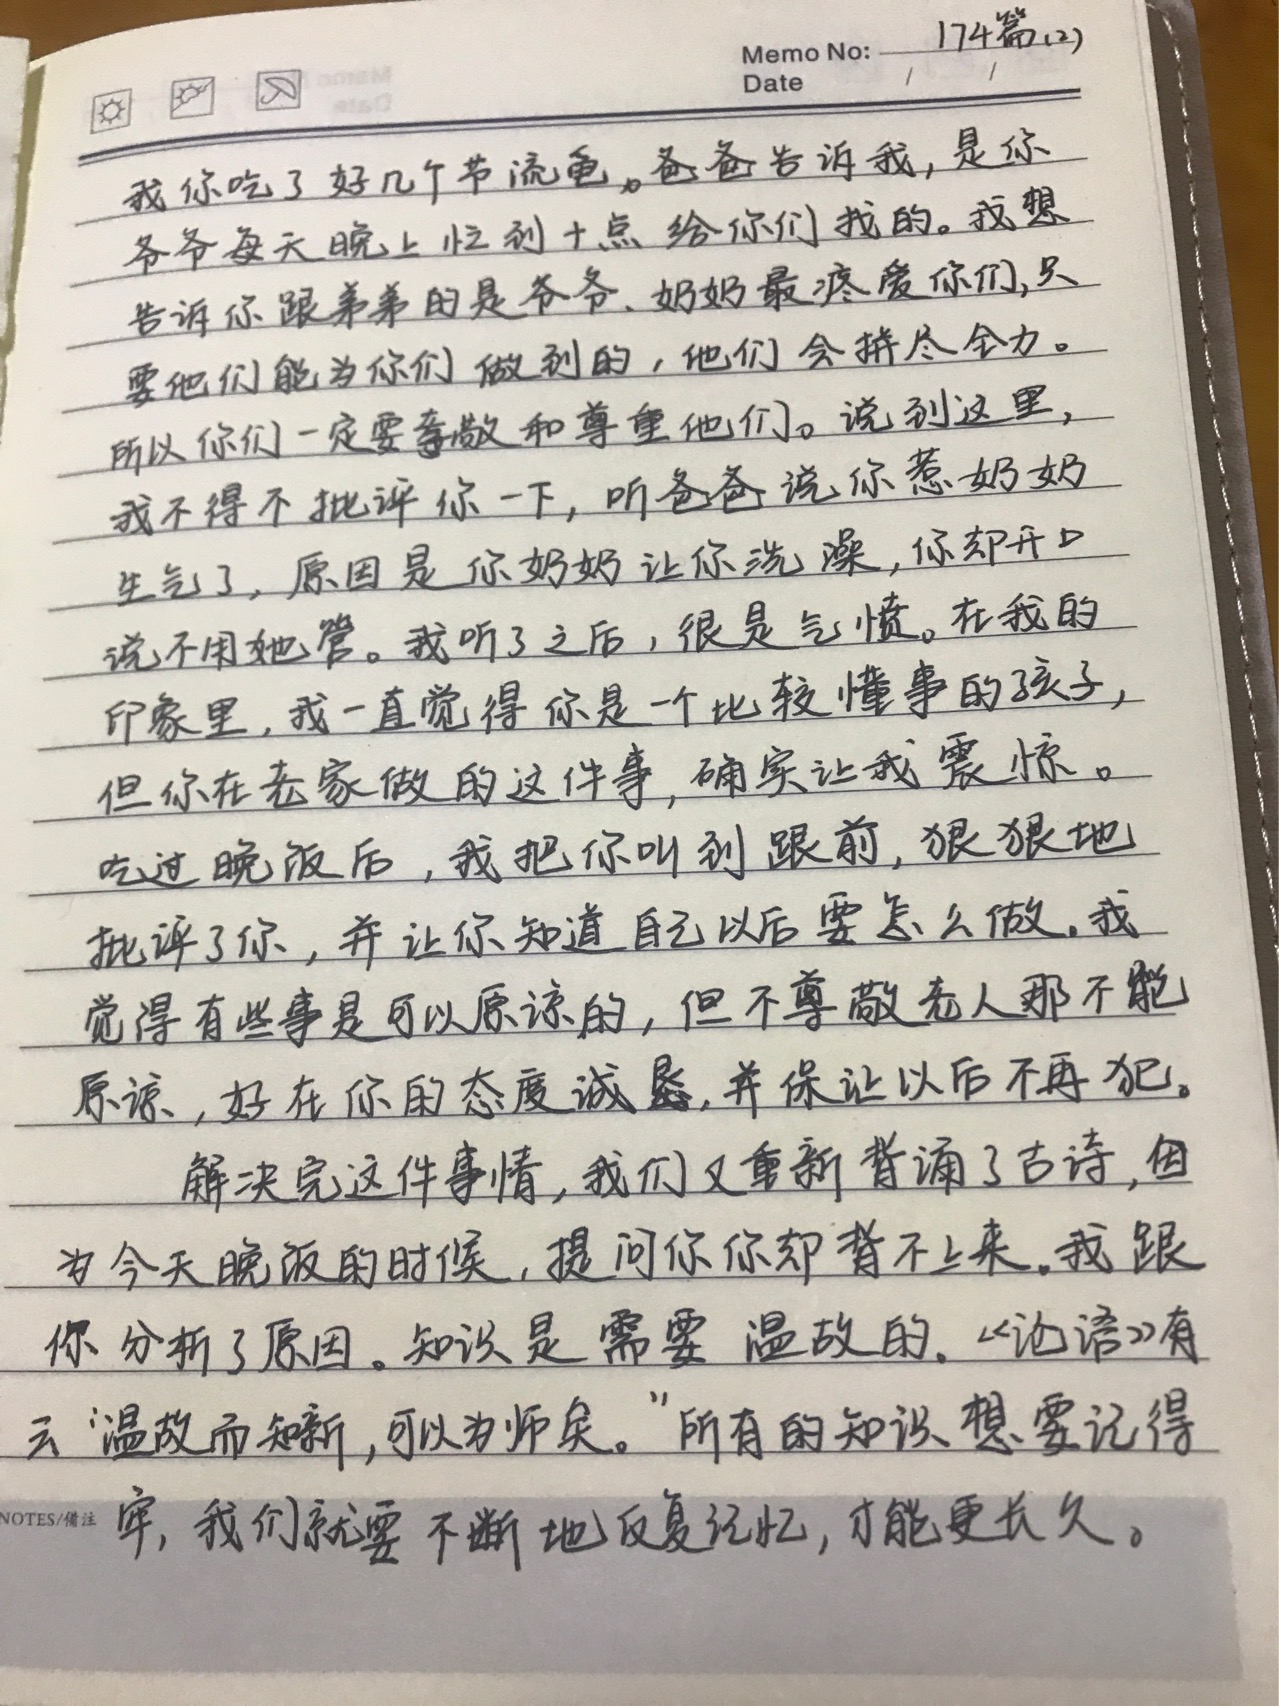 Memo No: 174篇(2)
Date / /
我你吃了好几个节流龟。爸爸告诉我，是你
爷爷每天晚上忙到十点给你们找的。我想
告诉你跟弟弟的是爷爷、奶奶最疼爱你们，只
要他们能为你们做到的，他们会拼尽全力。
所以你们一定要孝敬和尊重他们。说到这里，
我不得不批评你一下，听爸爸说你惹奶奶
生气了，原因是你奶奶让你洗澡，你却开口
说不用她管。我听了之后，很是气愤。在我的
印象里，我一直觉得你是一个比较懂事的孩子，
但你在老家做的这件事，确实让我震惊。
吃过晚饭后，我把你叫到跟前，狠狠地
批评了你，并让你知道自己以后要怎么做。我
觉得有些事是可以原谅的，但不尊敬老人那不能
原谅，好在你的态度诚恳，并保让以后不再犯。
解决完这件事情，我们又重新背诵了古诗，因
为今天晚饭的时候，提问你你却背不上来。我跟
你分析了原因。知识是需要温故的。《论语》有
云“温故而知新，可以为师矣。”所有的知识想要记得
NOTES/備注 牢，我们就要不断地反复记忆，才能更长久。